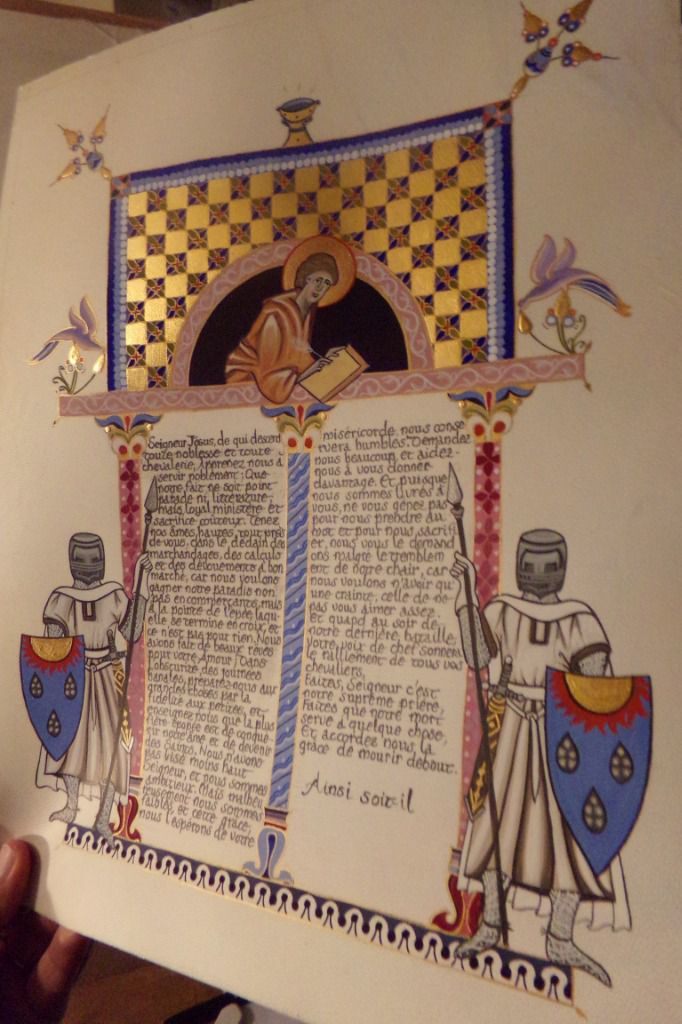 Seigneur Jésus, de qui descend
toute noblesse et toute
chevalerie, Apprenez nous à
servir noblement; Que
notre fait ne soit point
parade ni littérature,
mais loyal ministère et
sacrifice coûteux. Tenez
nos âmes hautes, tout près
de vous, dans le dédain des
marchandages, des calculs
et des dévouements à bon
marché, car nous voulons
gagner notre paradis non
pas en commerçants, mais
à la pointe de l'épée, laqu
elle se termine en croix, et
ce n'est pas pour rien. Nous
avons fait de beaux rêves
pour votre Amour; Dans
l'obscurité des journées
banales, préparez-nous aux
grandes choses par la
fidélité aux petites, et
enseignez nous que la plus
fière épopée est de conqué-
rir notre âme et de devenir
des Saints. Nous n'avons
pas visé moins haut
Seigneur, et nous sommes
ambitieux. Mais malheu
reusement nous sommes
faibles, et cette grâce,
nous l'espérons de votre
miséricorde, nous conse
rvera humbles. Demandez
nous beaucoup et aidez-
nous à vous donner
davantage. Et puisque
nous sommes livrés à
vous, ne vous gênez pas
pour nous prendre au
mot et pour nous sacrifi
er, nous vous le demand
ons malgré le tremblem
ent de notre chair, car
nous voulons n'avoir qu'
une crainte, celle de ne
pas vous aimer assez.
Et quand au soir de
notre dernière bataille,
votre voix de chef sonnera
le ralliement de tous vos
chevaliers,
Faites, Seigneur c'est
notre suprême prière,
Faites que notre mort
serve à quelque chose,
Et accordez nous la
grâce de mourir debout.
Ainsi soit-il